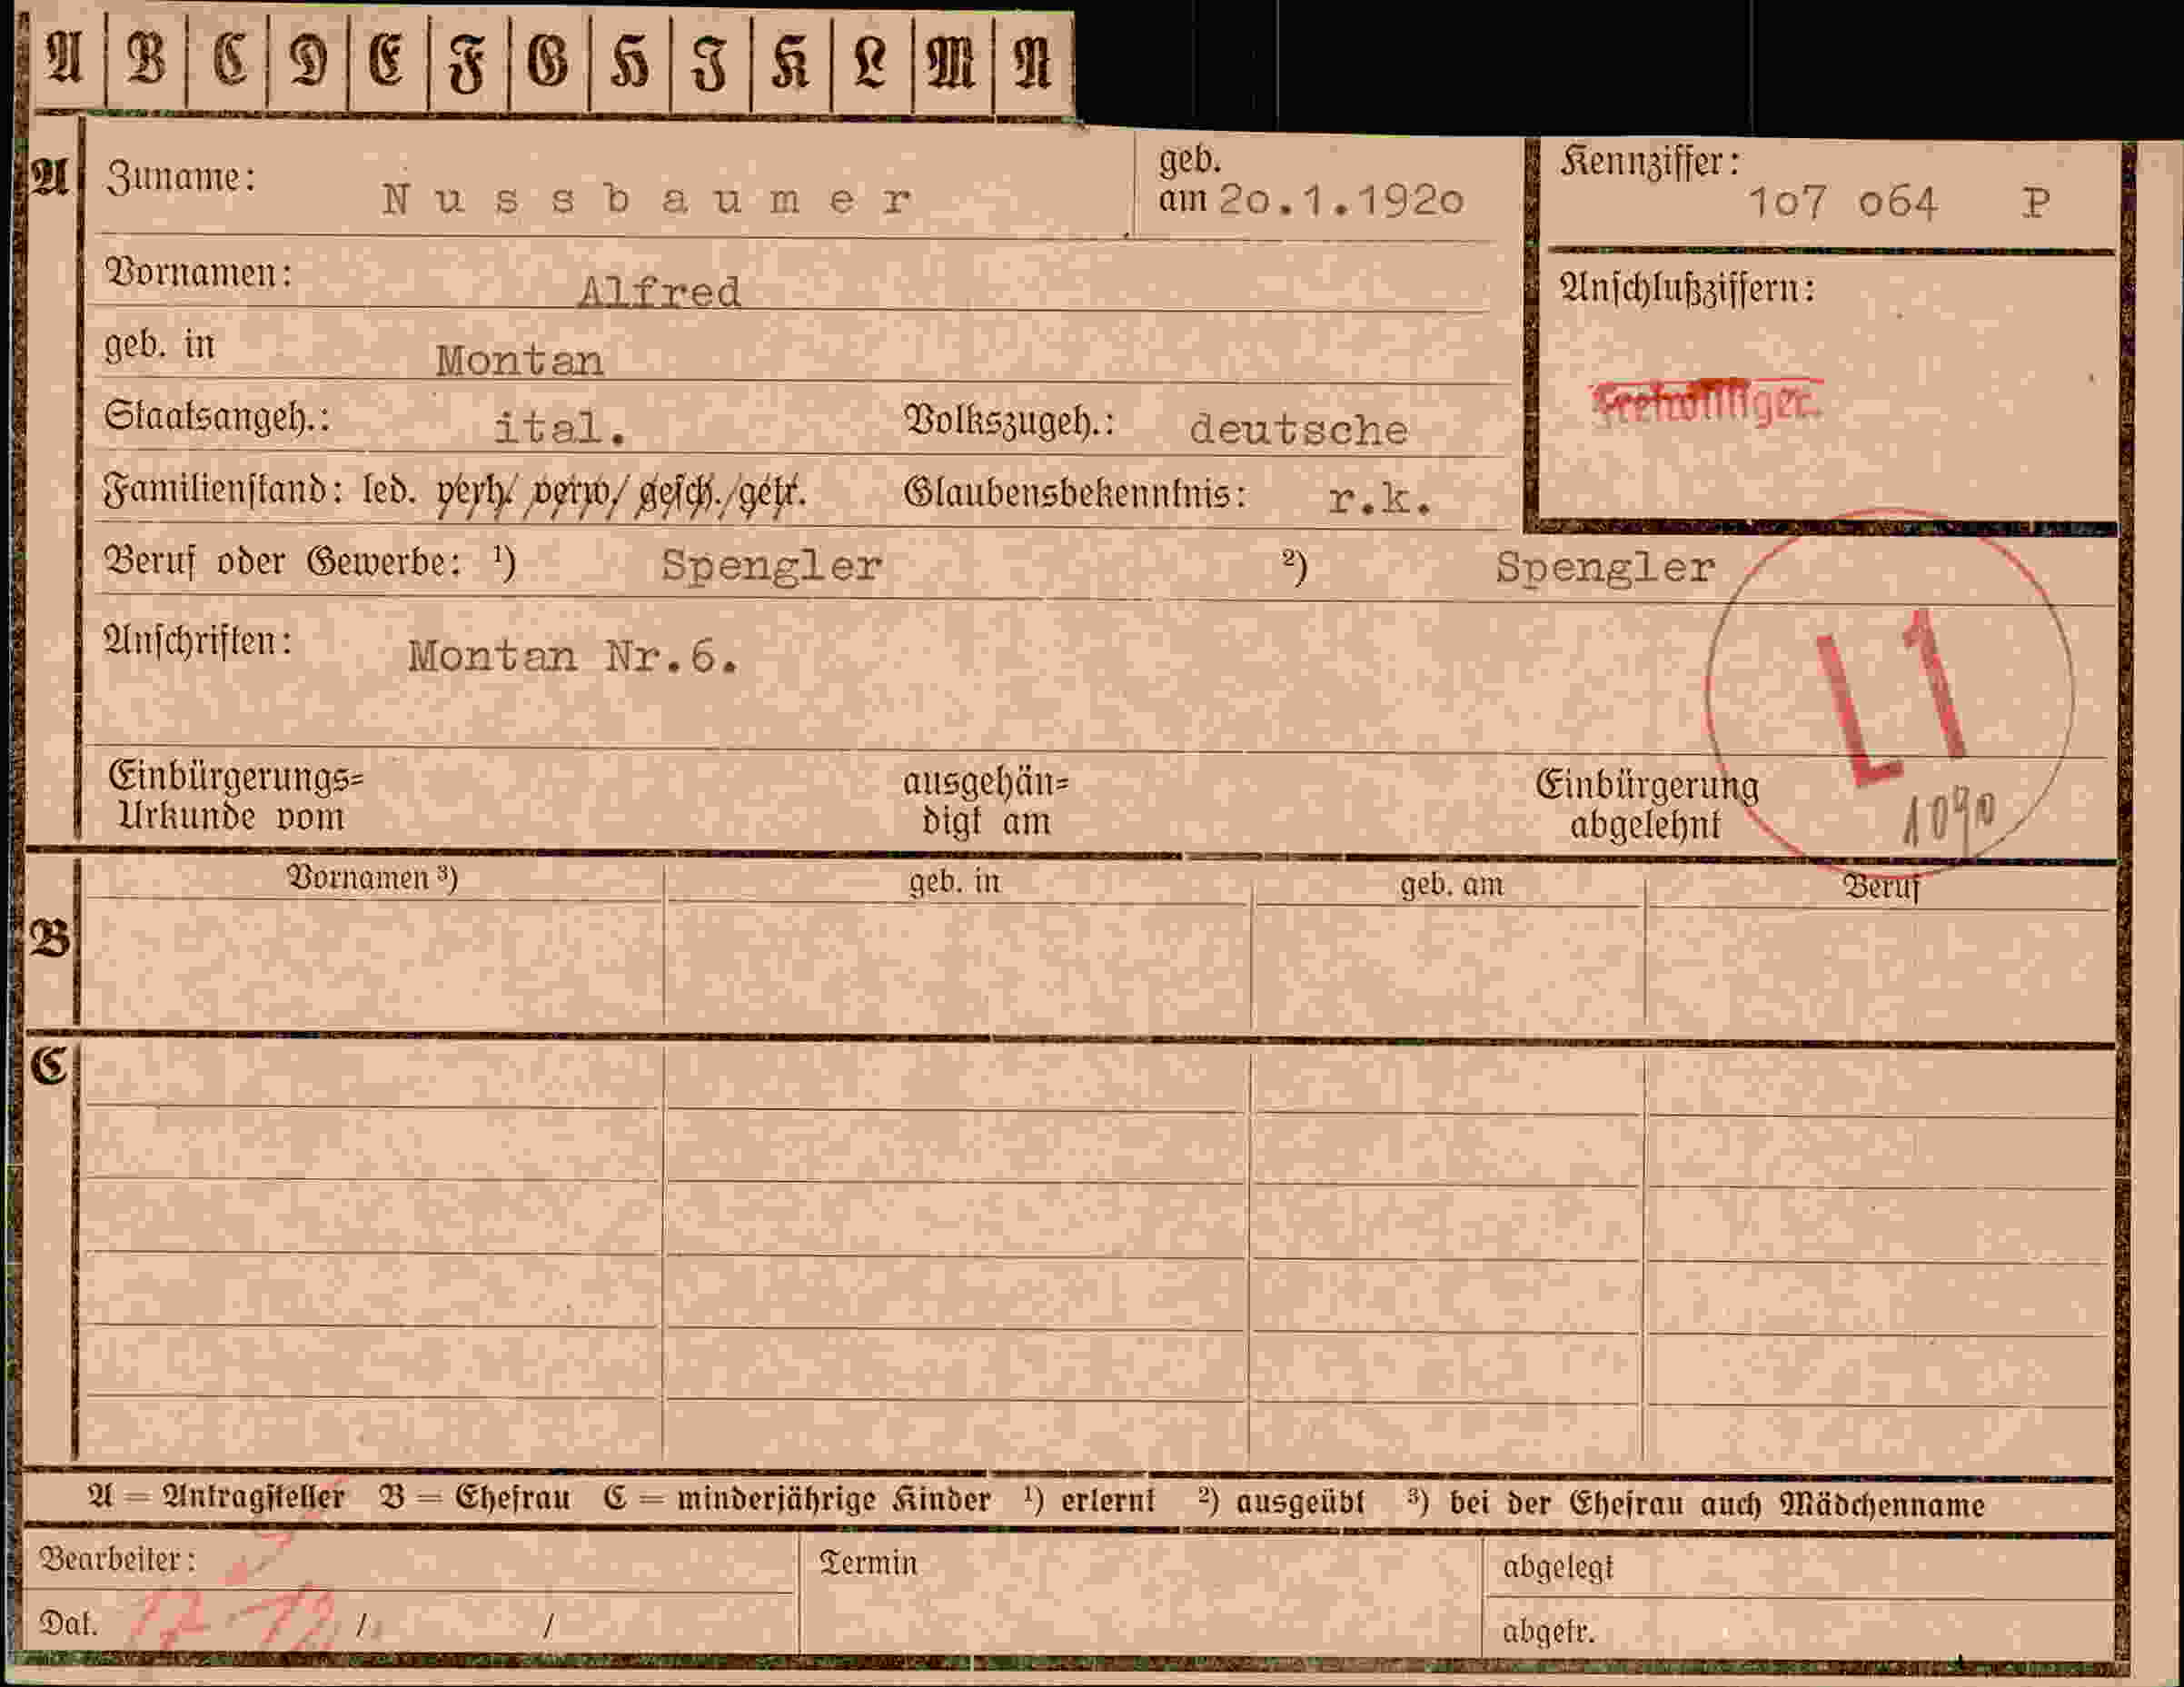 A B C D E F G H I K L M N
A Zuname: Nussbaumer geb. am 20.1.1920 Kennziffer: 107 064 P
Vornamen: Alfred Anschlußziffern:
geb. in Montan
Freiwilliger.
Staatsangeh.: ital. Volkszugeh.: deutsche
Familienstand: led. verh./ verw./ gesch./getr. Glaubensbekenntnis: r.k.
Beruf oder Gewerbe: ¹) Spengler ²) Spengler
Anschriften: Montan Nr.6.
L1
1090
Einbürgerungs= ausgehän= Einbürgerung
Urkunde vom digt am abgelehnt
Vornamen ³) geb. in geb. am Beruf
B
C
A = Antragsteller B = Ehefrau C = minderjährige Kinder ¹) erlernt ²) ausgeübt ³) bei der Ehefrau auch Mädchenname
Bearbeiter: Termin abgelegt
Dat. / / abgetr.